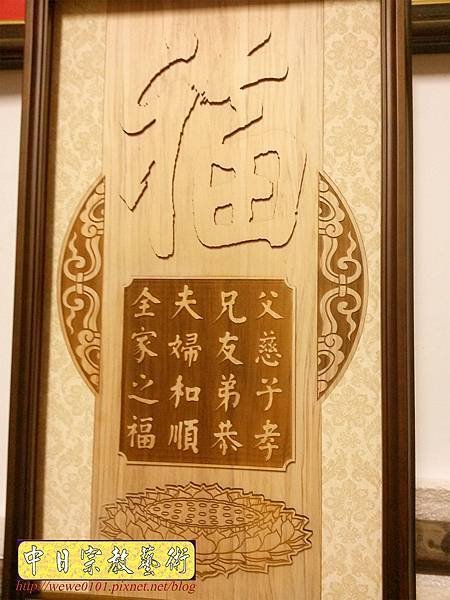 福
父慈子孝
兄友弟恭
夫婦和順
全家之福
中日宗教藝術
http://wewe0101.pixnet.net/blog